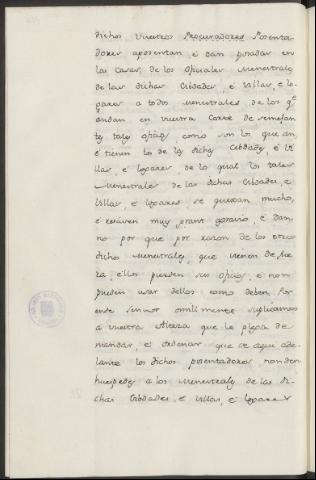 dichos vuestros Procuradores Posenta
dores aposentan é dan posadas en
las casas de los oficiales Menestrales
de las dichas Cibdades, é Villas, e lo
gares a todos menestrales de los qe
andan en vuestra Corte de semejan
tes tales oficios como son los que an,
é tienen los de las dichas Cibdades, é Vi
llas, e logares, de lo qual los tales
Menestrales de las dichas Cibdades, e
Villas é logares se quexan mucho,
é resciven muy grant agravio, e dan
no por que por razon de los otros
dichos Menestrales, que vienen de fue
ra ellos pierden sus oficios, é non
pueden usar dellos como deben. Por
ende Sennor omilmente suplicamos
a vuestra Alteza que le plega de
mandar, é ordenar que de aqui ade
lante los dichos posentadores non den
huespedes a los Menestrales de las di
chas Cibdades, é Villas, é logares